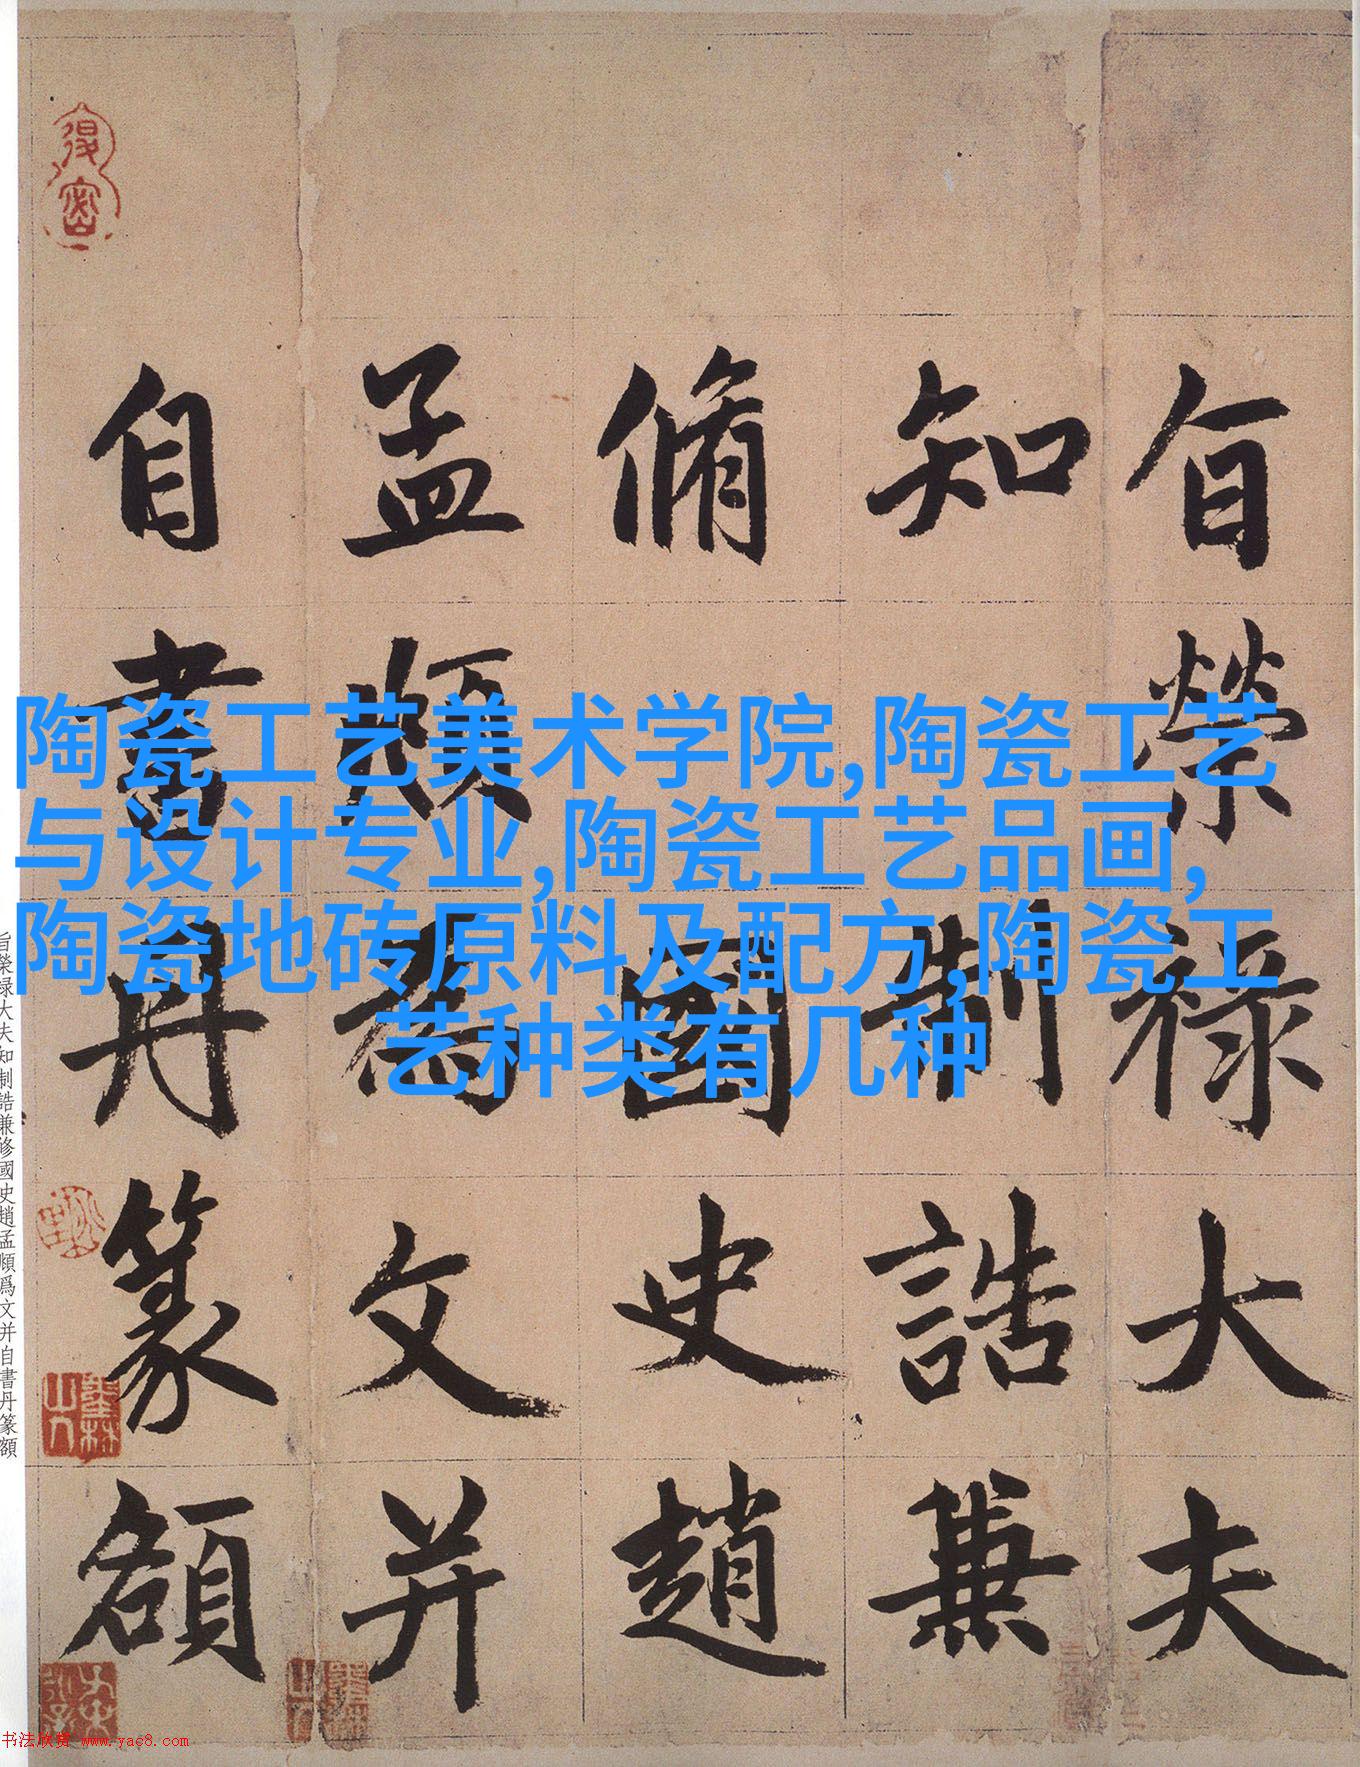 旨榮禄大夫
知制誥兼
脩國史趙
孟頫為文并
自書丹篆額
陶瓷工艺美术学院,陶瓷工艺
与设计专业,陶瓷工艺品画,
陶瓷地砖原料及配方,陶瓷工
艺种类有几种
旨榮禄大夫知制誥兼修國史趙孟頫爲文并自書丹篆額
书法欣赏 www.yac8.com